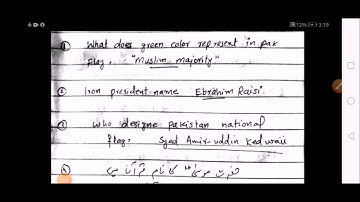 13% 3:19
① What does green color represent in pak
flag. "Muslim majority"
② Iron president name Ebrahim Raisi.
③ Who designe pakistan national
flag? Syed Amir-uddin Kedwaii
④ حضرت موسیٰؑ کا نام قرآن میں